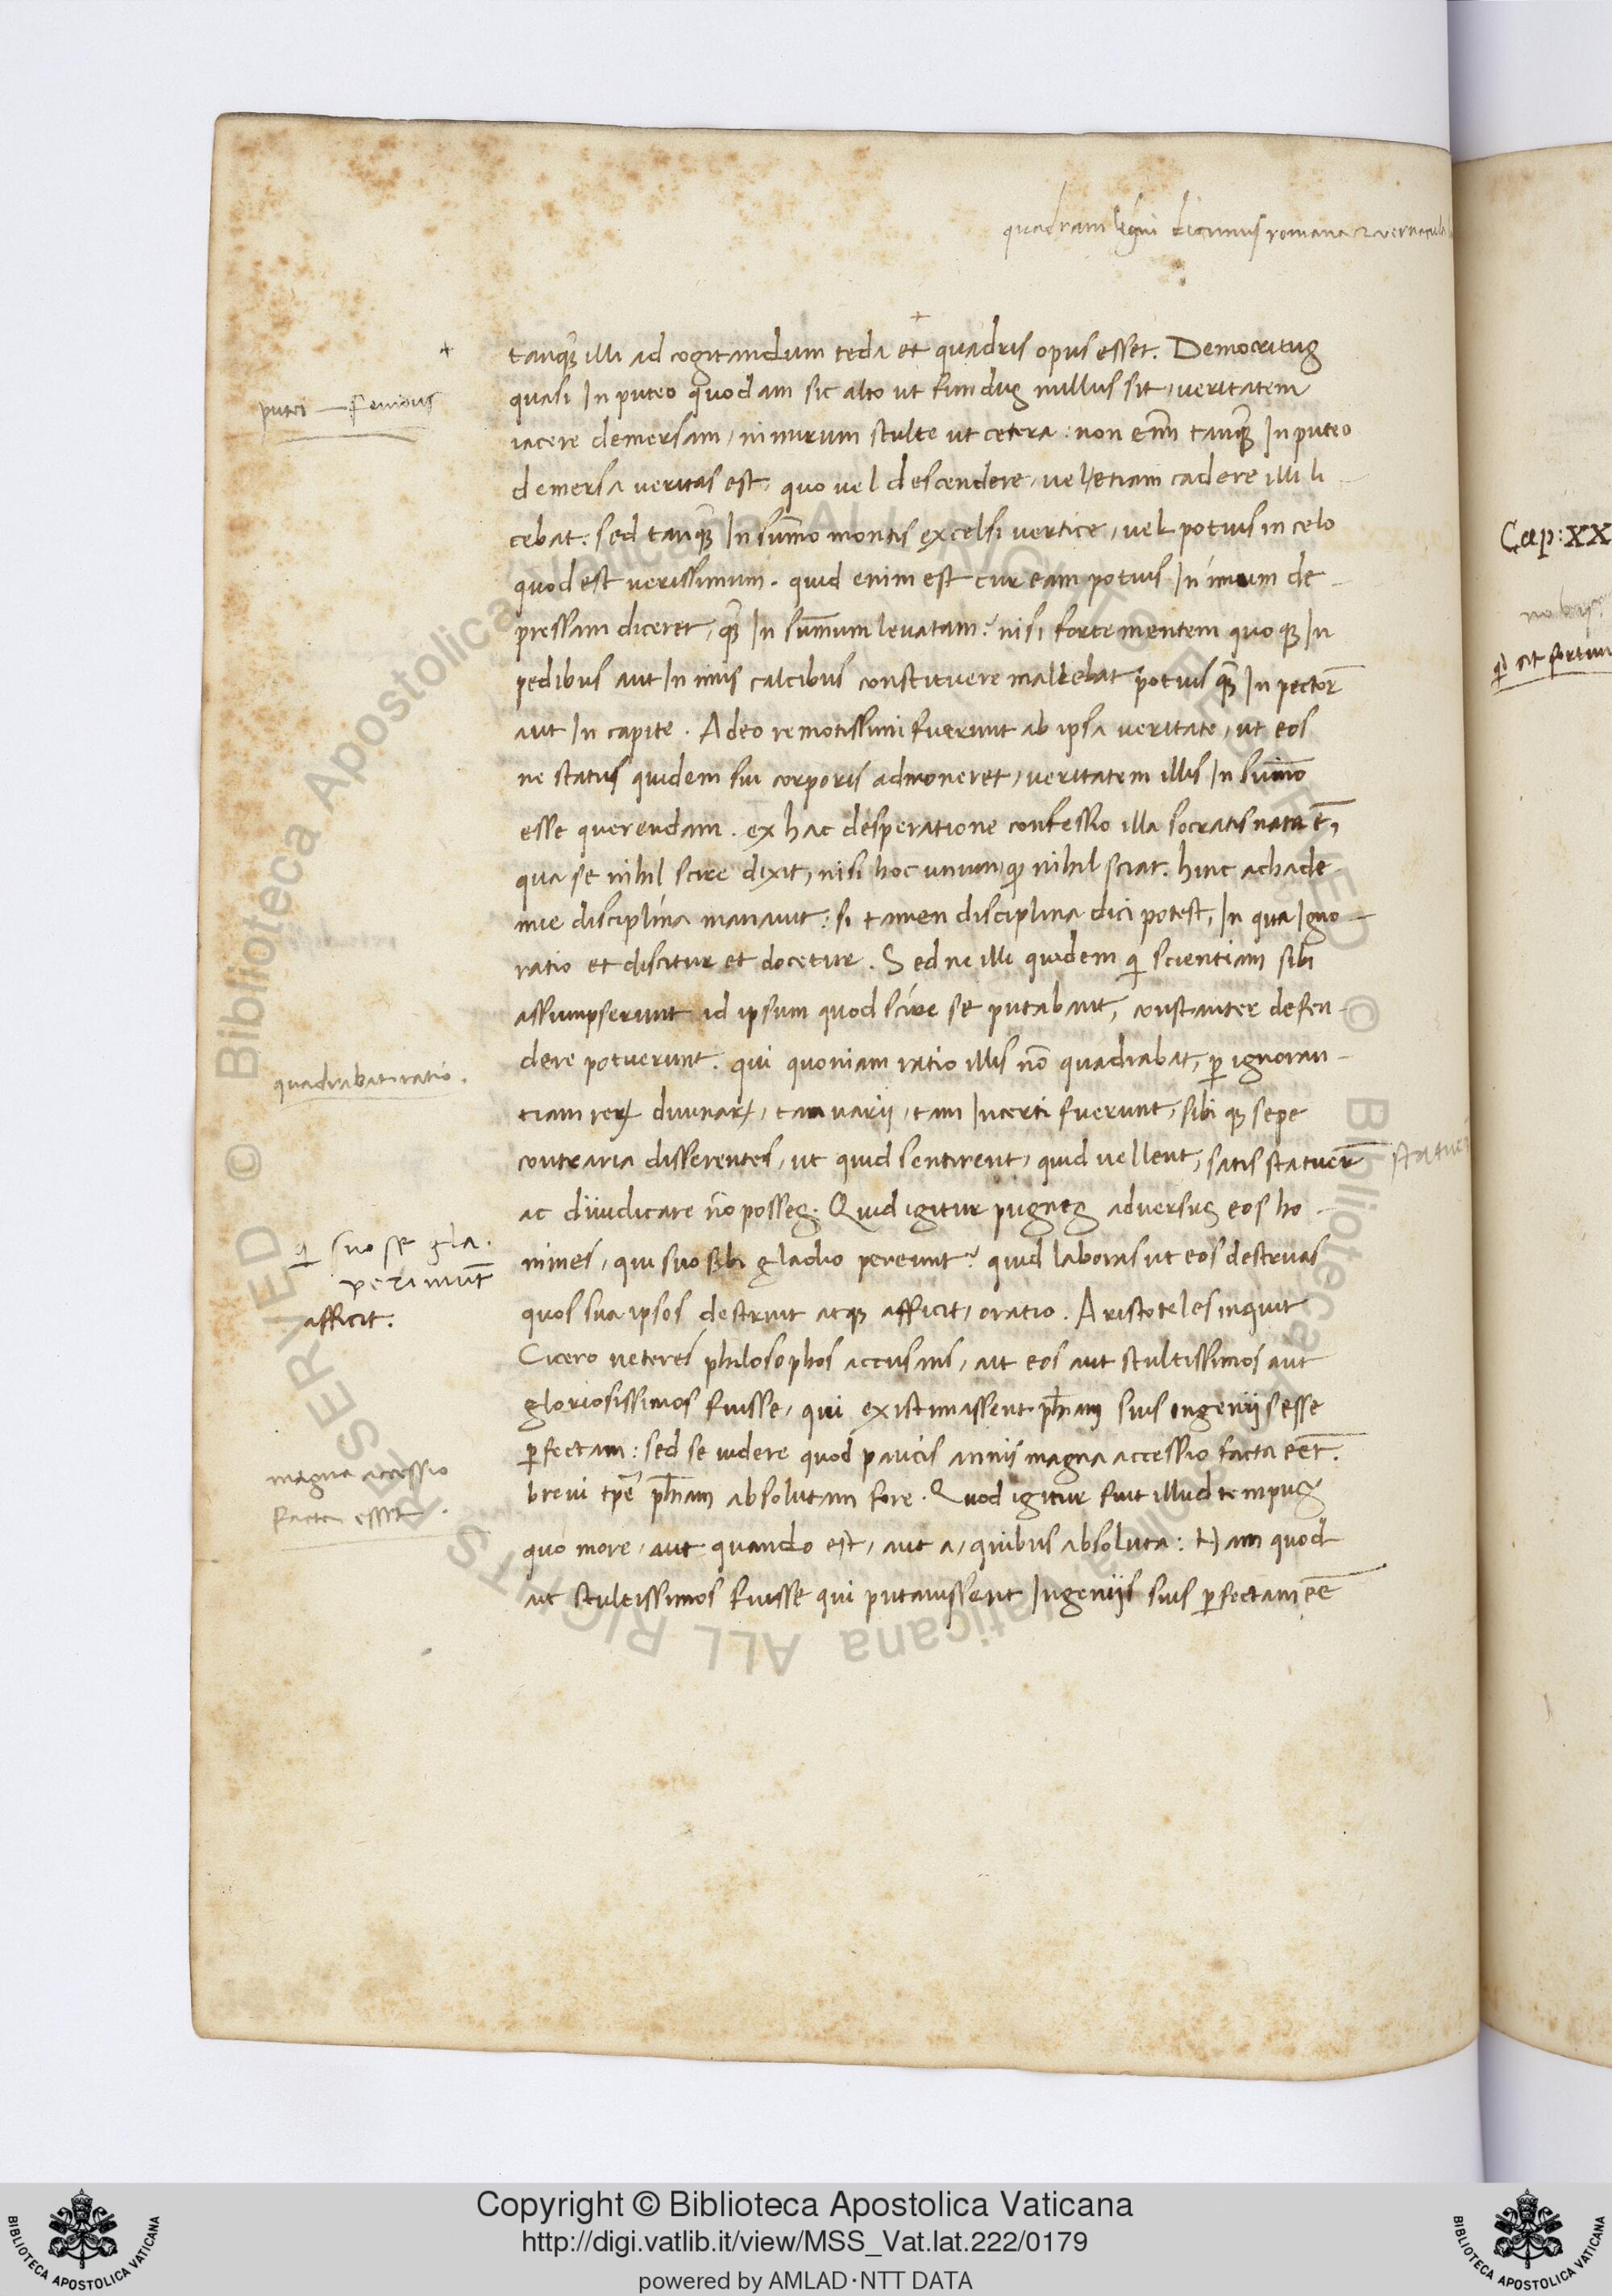 quadram ligni dicimus romana
tanq̃ illi ad cogitandum teda et quadris opus esset. Democritus
quasi In puteo quodam sic alto ut fundus nullus sit, veritatem
iacere demersam, nimirum stulte ut cetera: non enīm tanq̃ In puteo
demersa veritas est, quo vel descendere, vel etiam cadere illi li-
cebat: sed tanq̃ In sūmo montis excelsi vertice, vel potius in celo
quod est verissimum. quid enim est cur eam potius In imum de-
pressam diceret, q̃ In sum̄um levatam? nisi forte mentem quoqꝫ In
pedibus aut In imis calcibus constituere mallebat potius q̃ In pector̄
aut In capite. Adeo remotissimi fuerunt ab ipsa veritate, ut eos
ne status quidem sui corporis admoneret, veritatem illis In sum̄o
esse querendam. ex hac desperatione confessio illa socratis nata ē,
qua se nihil scire dixit, nisi hoc unum, qđ nihil sciat. hinc achade
mie disciplina manavit: si tamen disciplina dici potest, In qua Igno-
ratio et discitur et docetur. Sed ne illi quidem qi scientiam sibi
assumpserunt id ipsum quod scire se putabant, constanter defen-
dere potuerunt. qui quoniam ratio illis nō quadrabat, ꝑ ignoran-
tiam reꝝ divinaꝝ, tam varii, tam Incerti fuerunt, sibi qꝫ sepe
contraria disserentes, ut quid sentirent, quid vellent, satis statuer̄
ac diiudicare nō posses. Quid igitur pugnes adversus eos ho-
mines, qui suo sibi gladio pereunt? quid laboras ut eos destruas
quos sua ipsos destruit atqꝫ afficit, oratio. Aristoteles inquit
Cicero veteres philosophos accusans, ait eos aut stultissimos aut
gloriosissimos fuisse, qui existimassent ph̄iam suis ingeniis esse
ꝑfectam: sed se videre quod paucis annis magna accessio facta eēt.
brevi tp̄e ph̄iam absolutam fore. Quod igitur fuit illud tempus
quo more, aut quando est, aut a, quibus absoluta: Nam quod
ait stultissimos fuisse qui putavissent Ingeniis suis ꝑfectam eē
+
putei — fundus
quadrabat ratio.
qi suo se gla.
perimūt
afficit.
magna accessio
facta esset.
statuer
Cap: XX